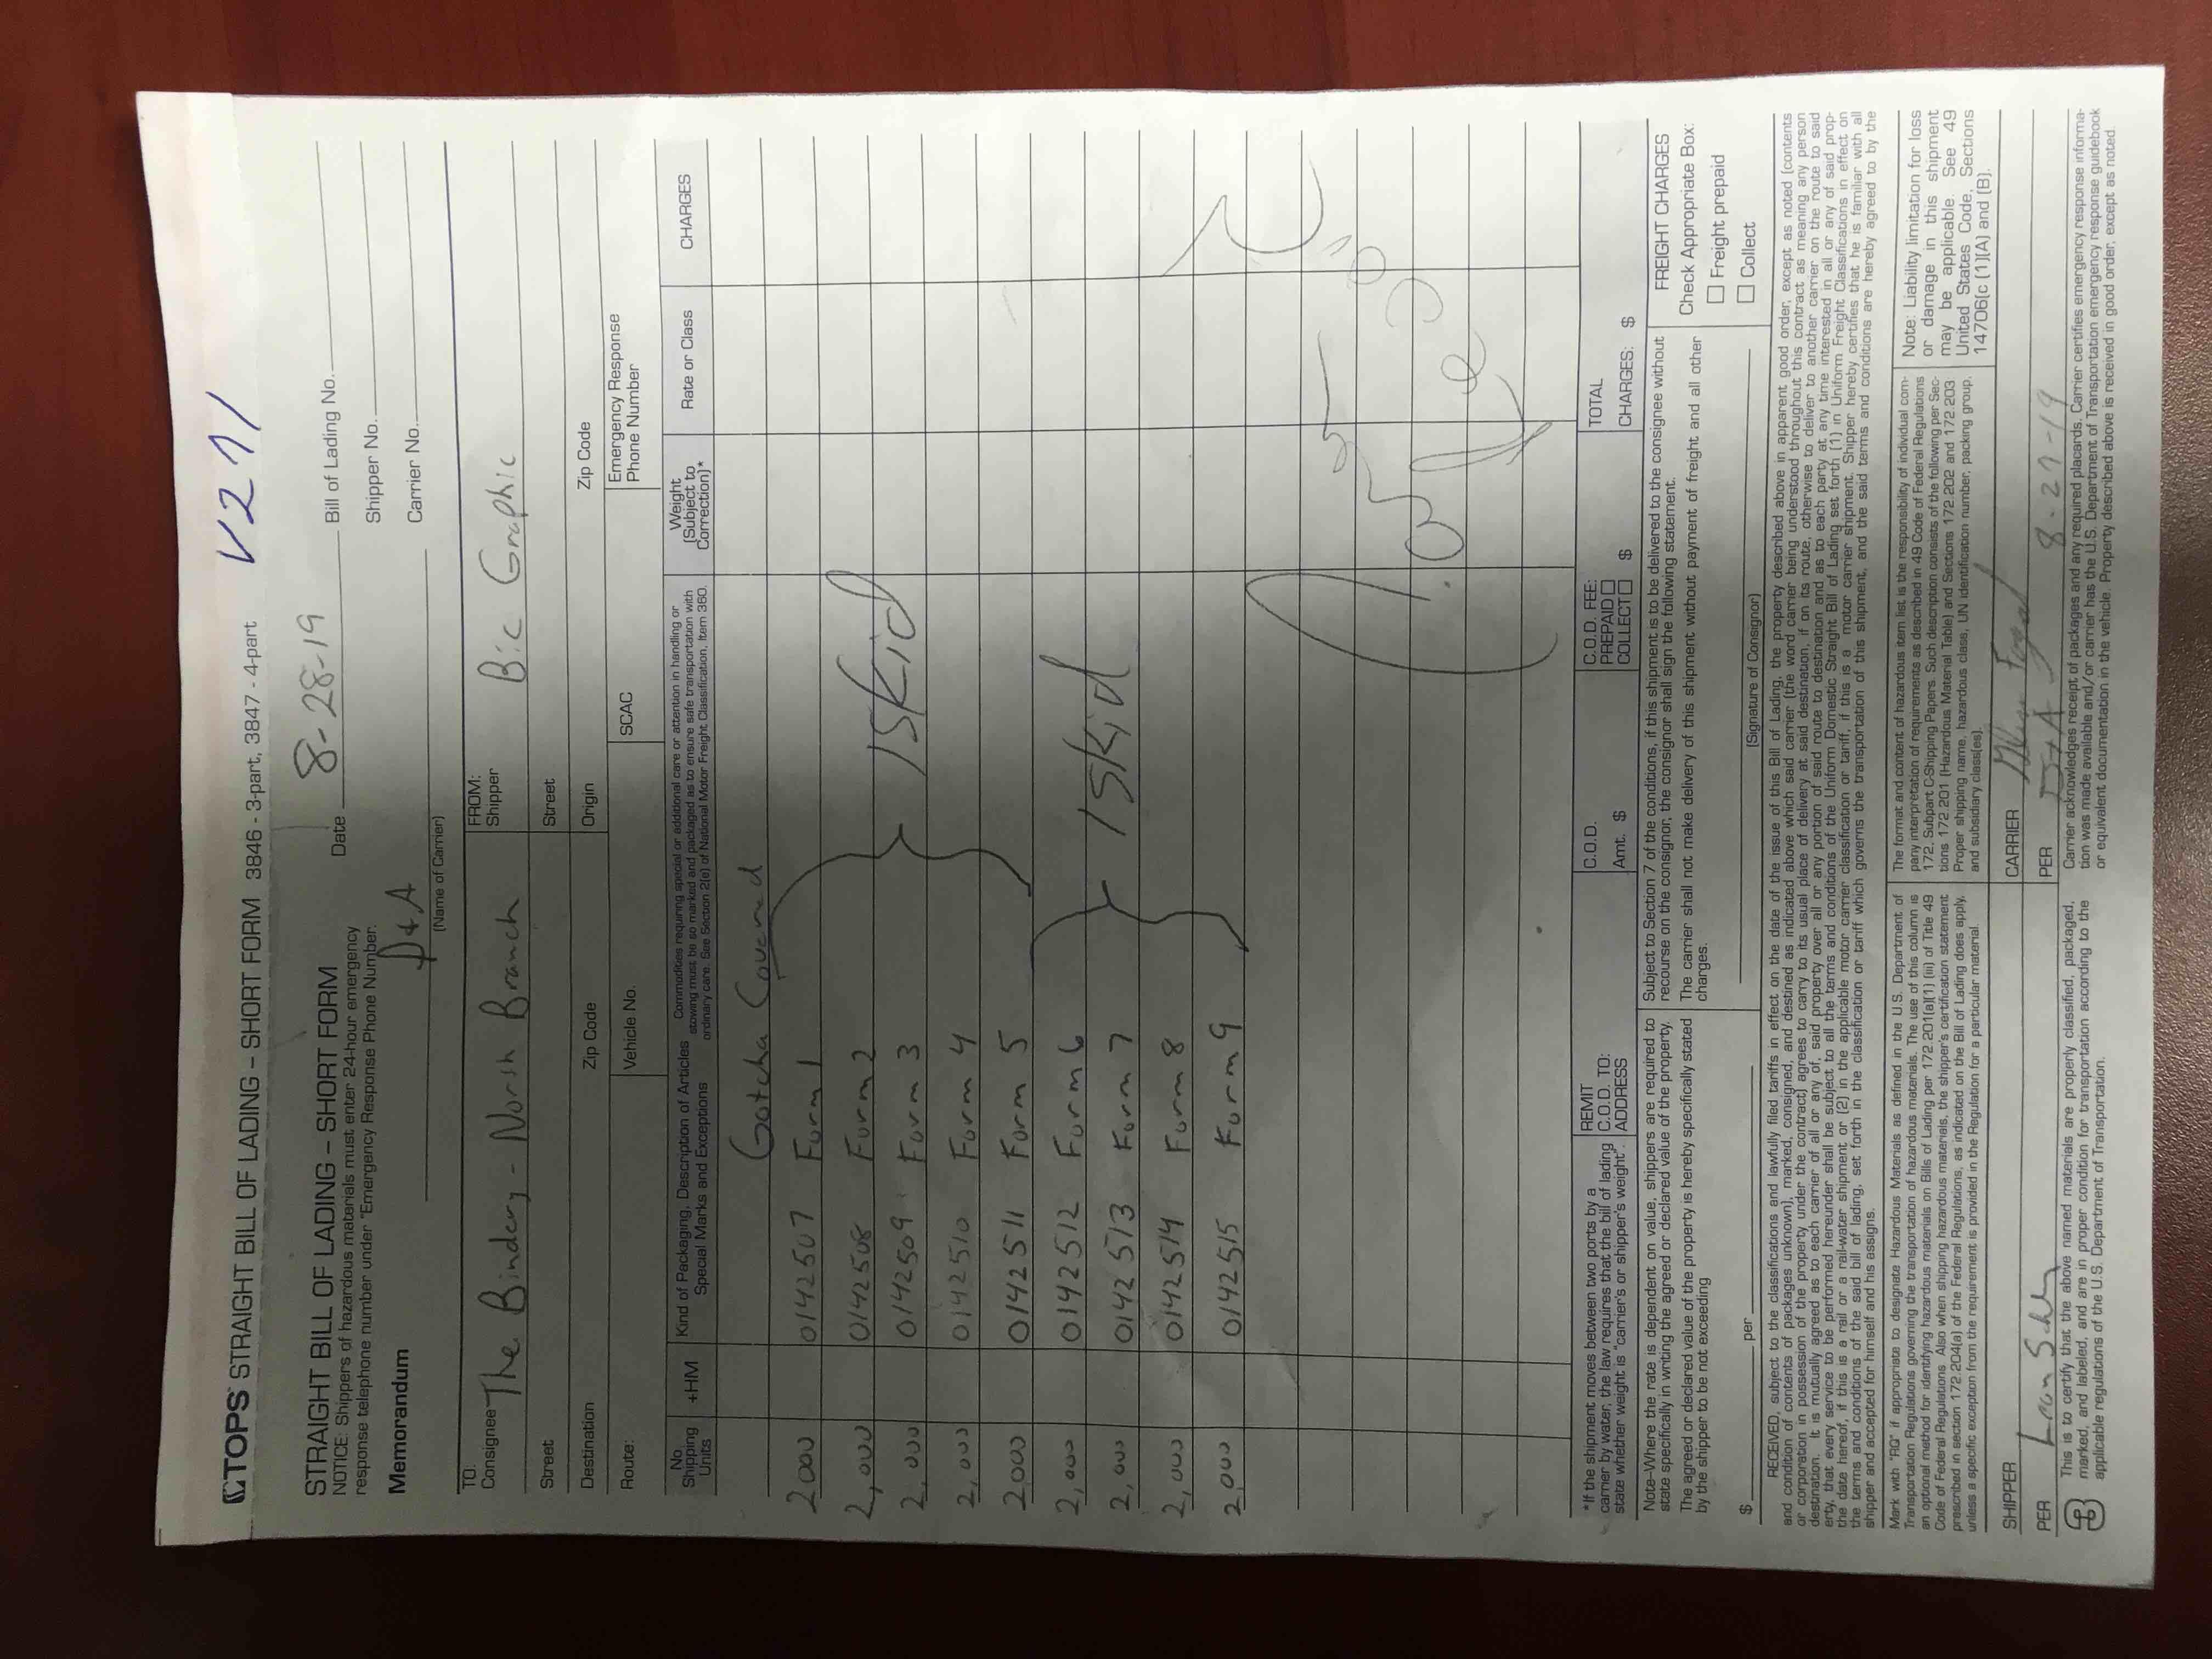 TOPS STRAIGHT BILL OF LADING – SHORT FORM 3846 - 3-part, 3847 - 4-part
V271
STRAIGHT BILL OF LADING – SHORT FORM
NOTICE: Shippers of hazardous materials must enter 24-hour emergency
response telephone number under "Emergency Response Phone Number.
Date 8-28-19
Bill of Lading No.
Shipper No.
Carrier No.
Memorandum
D & A
(Name of Carrier)
TO:
Consignee The Bindery - North Branch
FROM:
Shipper Bic Graphic
Street
Street
Destination Zip Code
Origin Zip Code
Route: Vehicle No. SCAC
Emergency Response
Phone Number
No.
Shipping
Units
+HM
Kind of Packaging, Description of Articles
Special Marks and Exceptions
Commodities requiring special or additional care or attention in handling or
stowing must be so marked and packaged as to ensure safe transportation with
ordinary care. See Section 2(e) of National Motor Freight Classification, Item 360.
Weight
(Subject to
Correction)*
Rate or Class
CHARGES
Gotcha Covered
2000 0142507 Form 1
2,000 0142508 Form 2
2,000 0142509 Form 3
1 Skid
2,000 0142510 Form 4
2,000 0142511 Form 5
2,000 0142512 Form 6
2,000 0142513 Form 7
1 Skid
2,000 0142514 Form 8
2,000 0142515 Form 9
*If the shipment moves between two ports by a
carrier by water, the law requires that the bill of lading
state whether weight is "carrier's or shipper's weight".
REMIT
C.O.D. TO:
ADDRESS
C.O.D.
Amt. $
C.O.D. FEE:
PREPAID
COLLECT $
TOTAL
CHARGES: $
Note–Where the rate is dependent on value, shippers are required to
state specifically in writing the agreed or declared value of the property.
The agreed or declared value of the property is hereby specifically stated
by the shipper to be not exceeding
$ per
Subject to Section 7 of the conditions, if this shipment is to be delivered to the consignee without
recourse on the consignor, the consignor shall sign the following statement.
The carrier shall not make delivery of this shipment without payment of freight and all other
charges.
(Signature of Consignor)
FREIGHT CHARGES
Check Appropriate Box:
Freight prepaid
Collect
RECEIVED, subject to the classifications and lawfully filed tariffs in effect on the date of the issue of this Bill of Lading, the property described above in apparent good order, except as noted (contents
and condition of contents of packages unknown), marked, consigned, and destined as indicated above which said carrier (the word carrier being understood throughout this contract as meaning any person
or corporation in possession of the property under the contract) agrees to carry to its usual place of delivery at said destination, if on its route, otherwise to deliver to another carrier on the route to said
destination. It is mutually agreed as to each carrier of all or any of, said property over all or any portion of said route to destination and as to each party at any time interested in all or any of said prop-
erty, that every service to be performed hereunder shall be subject to all the terms and conditions of the Uniform Domestic Straight Bill of Lading set forth (1) in Uniform Freight Classifications in effect on
the date hereof, if this is a rail or a rail-water shipment or (2) in the applicable motor carrier classification or tariff, if this is a motor carrier shipment. Shipper hereby certifies that he is familiar with all
the terms and conditions of the said bill of lading, set forth in the classification or tariff which governs the transportation of this shipment, and the said terms and conditions are hereby agreed to by the
shipper and accepted for himself and his assigns.
Mark with "RQ" if appropriate to designate Hazardous Materials as defined in the U.S. Department of
Transportation Regulations governing the transportation of hazardous materials. The use of this column is
an optional method for identifying hazardous materials on Bills of Lading per 172.201(a)(1) (iii) of Title 49
Code of Federal Regulations. Also when shipping hazardous materials, the shipper's certification statement
prescribed in section 172.204(a) of the Federal Regulations, as indicated on the Bill of Lading does apply,
unless a specific exception from the requirement is provided in the Regulation for a particular material.
The format and content of hazardous item list is the responsibility of individual com-
pany interpretation of requirements as described in 49 Code of Federal Regulations
172. Subpart C-Shipping Papers. Such description consists of the following per Sec-
tions 172.201 (Hazardous Material Table) and Sections 172.202 and 172.203
Proper shipping name, hazardous class, UN identification number, packing group,
and subsidiary class(es).
Note: Liability limitation for loss
or damage in this shipment
may be applicable. See 49
United States Code, Sections
14706(c (1)(A) and (B).
SHIPPER
CARRIER
PER
PER D+A 8-27-19
This is to certify that the above named materials are properly classified, packaged,
marked, and labeled, and are in proper condition for transportation according to the
applicable regulations of the U.S. Department of Transportation.
Carrier acknowledges receipt of packages and any required placards. Carrier certifies emergency response informa-
tion was made available and/or carrier has the U.S. Department of Transportation emergency response guidebook
or equivalent documentation in the vehicle. Property described above is received in good order, except as noted.